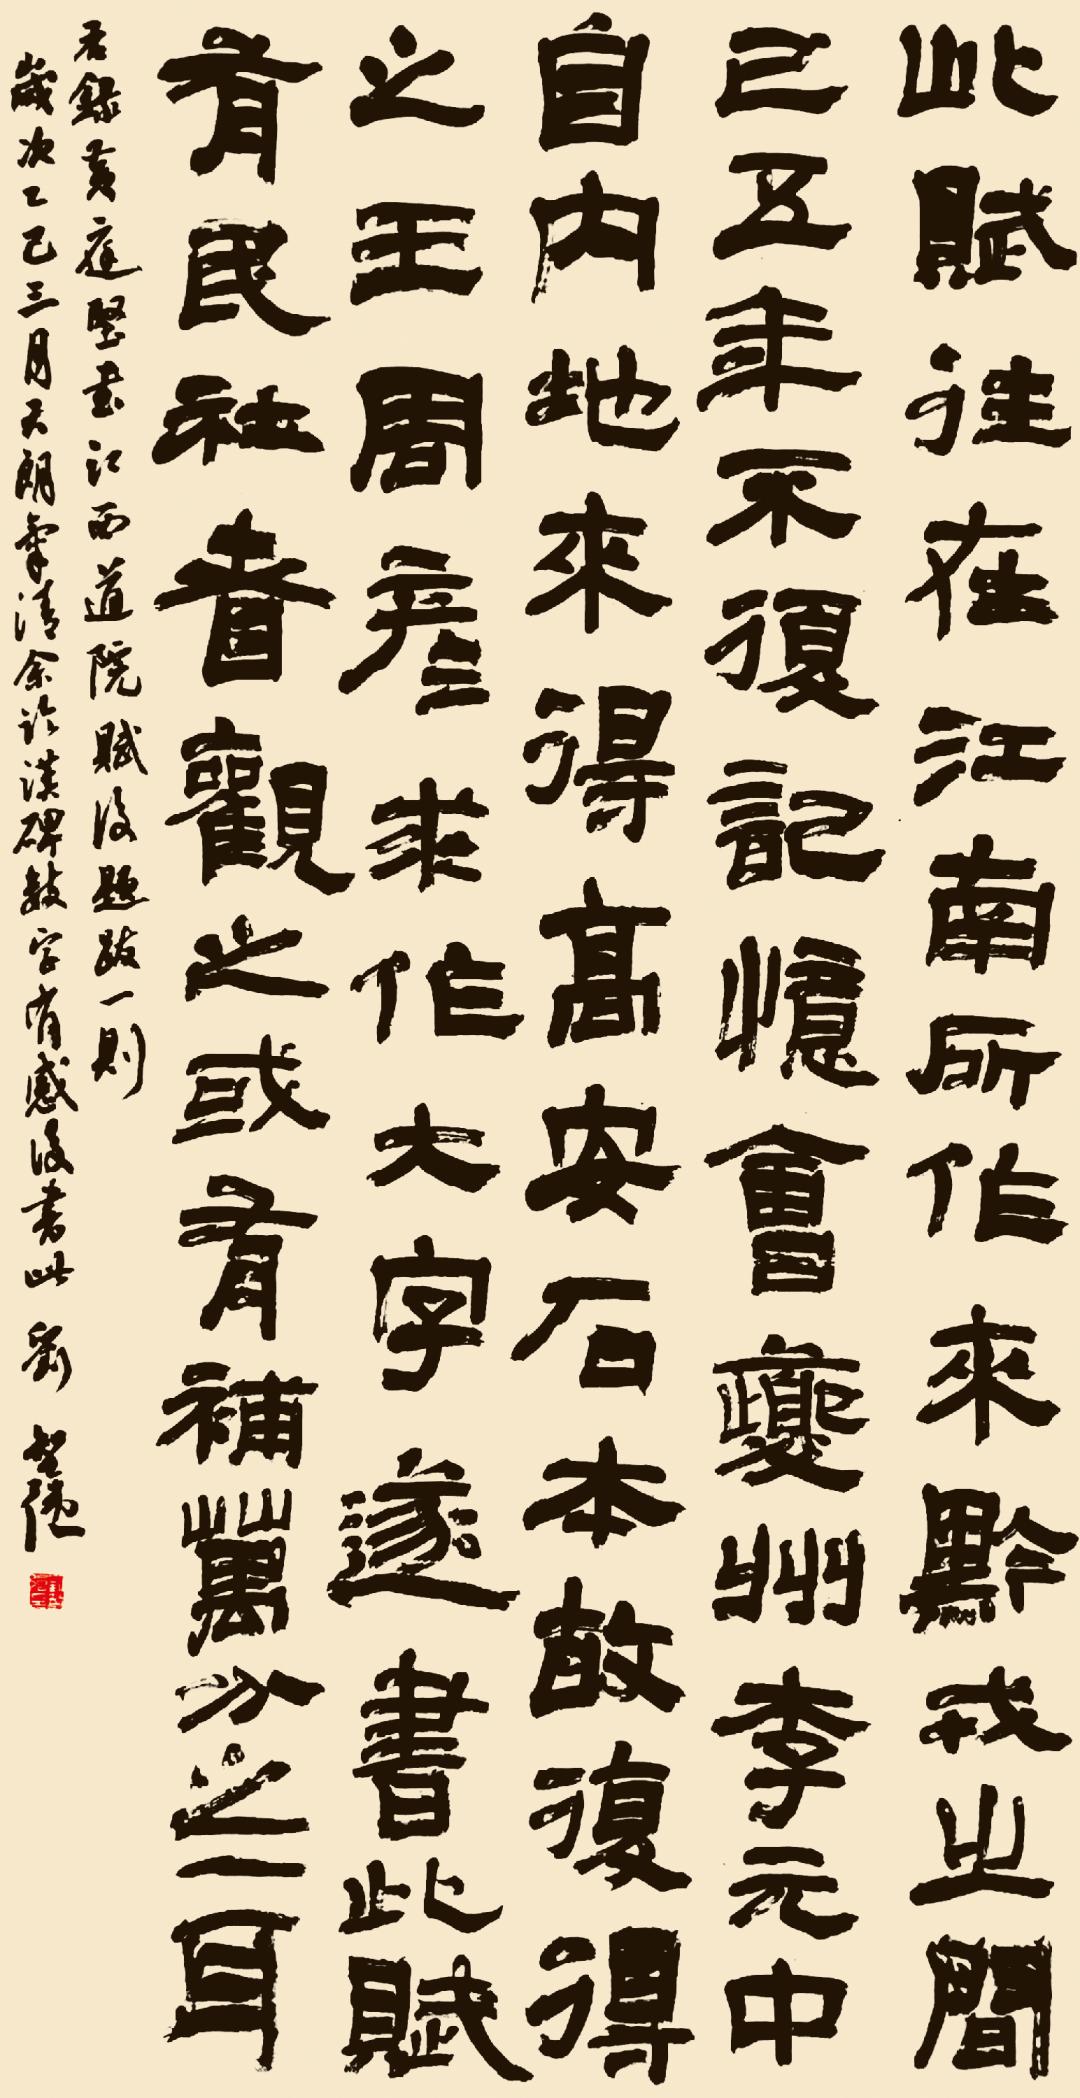 此賦往在江南所作來黔戎之間
已五年不復記憶會夔州李元中
自内地來得高安石本故復得
之王周彦求作大字遂書此賦
有民社者觀之或有補萬分之一耳
右錄黃庭堅書江西道院賦後題跋一則
歲次乙巳三月天朗氣清余臨漢碑數字有感後書此 劉